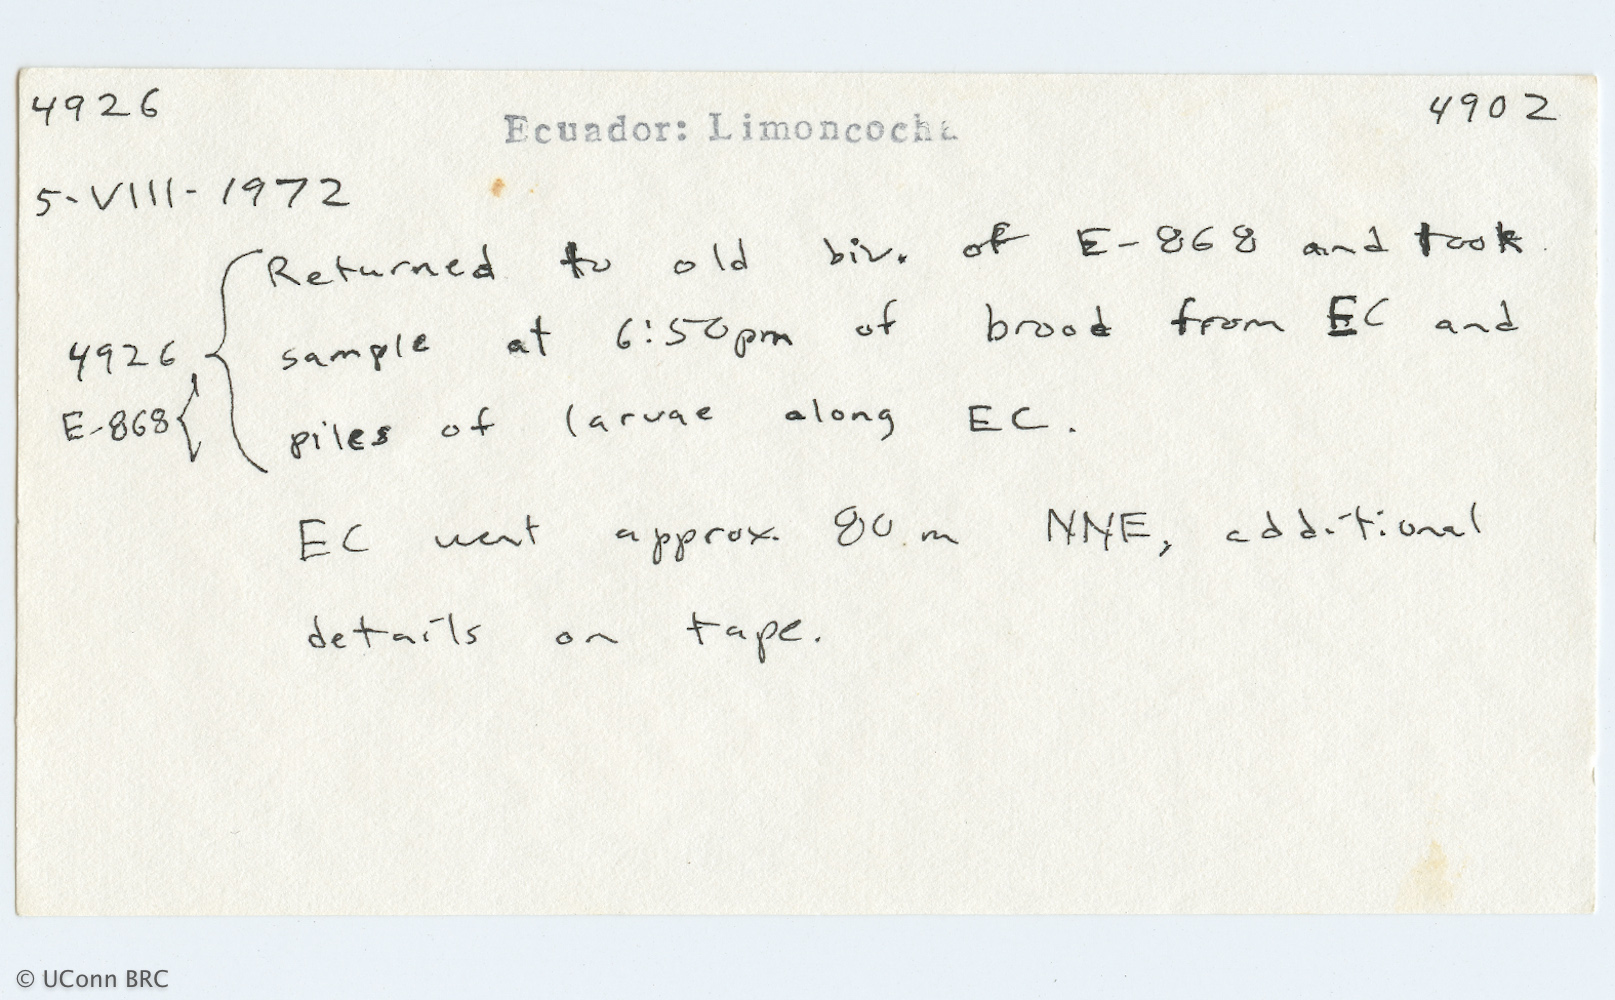 4926
Ecuador: Limoncocha
4902
5-VIII-1972
Returned to old biv. of E-868 and took
sample at 6:50pm of brood from EC and
piles of larvae along EC.
4926
E-868
EC went approx. 80 m NNE, additional
details on tape.
© UConn BRC